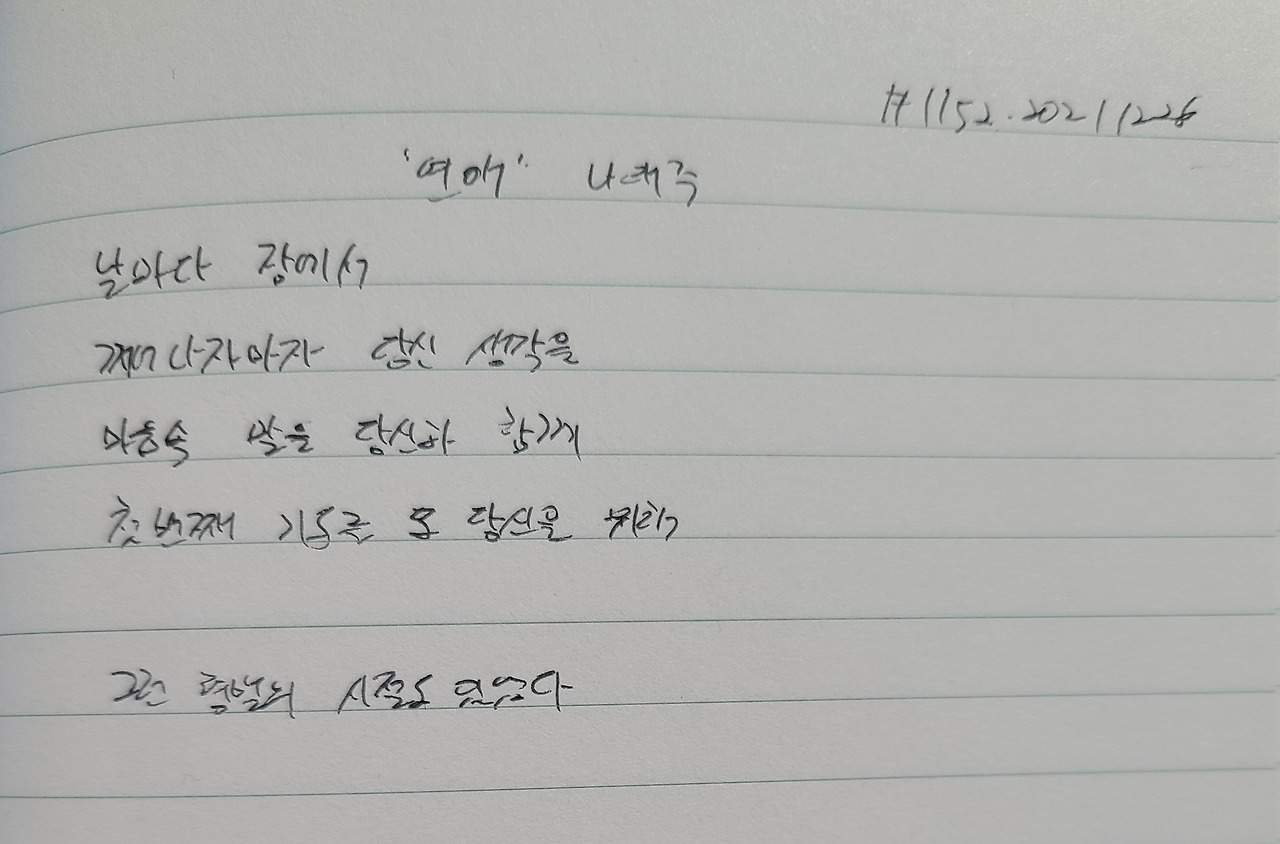 #1152. 20211226
'연애' 나태주
날마다 잠에서
깨어나자마자 당신 생각을
마음속 말을 당신과 함께
첫 번째 기도를 또 당신을 위해
그런 형벌의 시절도 있었다